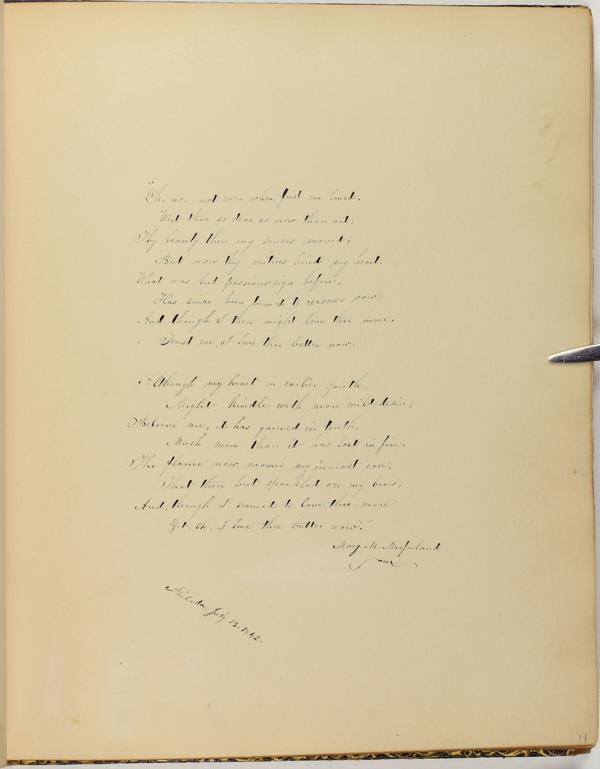 "Oh, no - not e'en when first we loved,
Wert thou so dear as now thou art;
Thy beauty then my senses moved,
But now thy virtues bind my heart.
What was but passion's sign before,
Has since been turned to reason's vow;
And though I then might love thee more,
Trust me, I love thee better now.
Although my heart in earlier youth,
Might kindle with more wild desire;
Believe me, it has gained in truth,
Much more than it has lost in fire.
The flame now warms my inmost core,
That then but sparkled o'er my brow;
And, though I seemed to love thee more
Yet, oh, I love thee better now."
Mary M. Macfarland
Philada July 13. 1842.
11